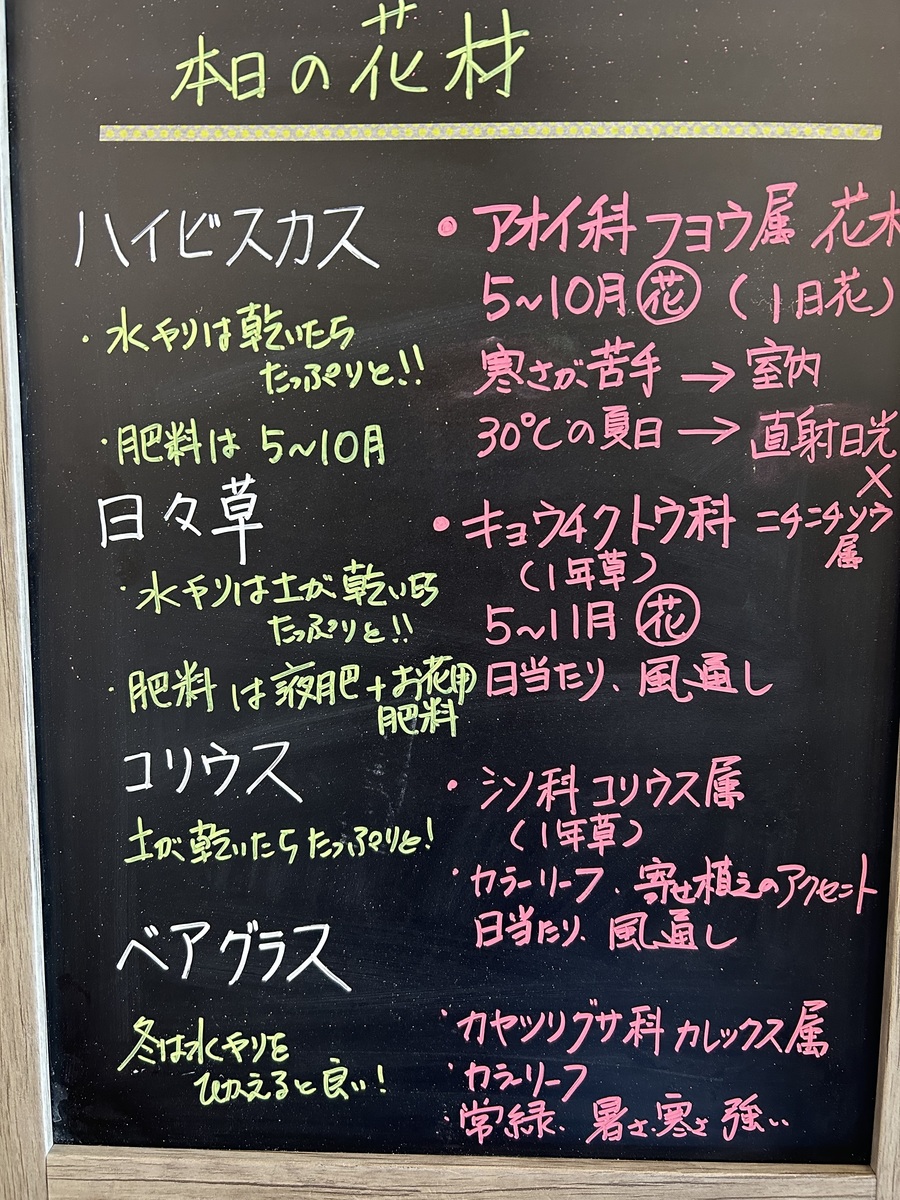 本日の花材
ハイビスカス
・水やりは乾いたら
たっぷりと!!
・肥料は 5~10月
• アオイ科 フヨウ属 花木
5~10月 花 (1日花)
寒さが苦手 → 室内
30℃の夏日 → 直射日光
×
日々草
・水ヤリは土が乾いたら
たっぷりと!!
・肥料は液肥+お花用
肥料
• キョウチクトウ科 ニチニチソウ
属
(1年草)
5~11月 花
日当たり、風通し
コリウス
土が乾いたらたっぷりと!
・シソ科 コリウス属
(1年草)
・カラーリーフ、寄せ植えのアクセント
日当たり、風通し
ベアグラス
冬は水やりを
ひかえると良い!
・カヤツリグサ科 カレックス属
・カラーリーフ
・常緑、暑さ寒さ強い